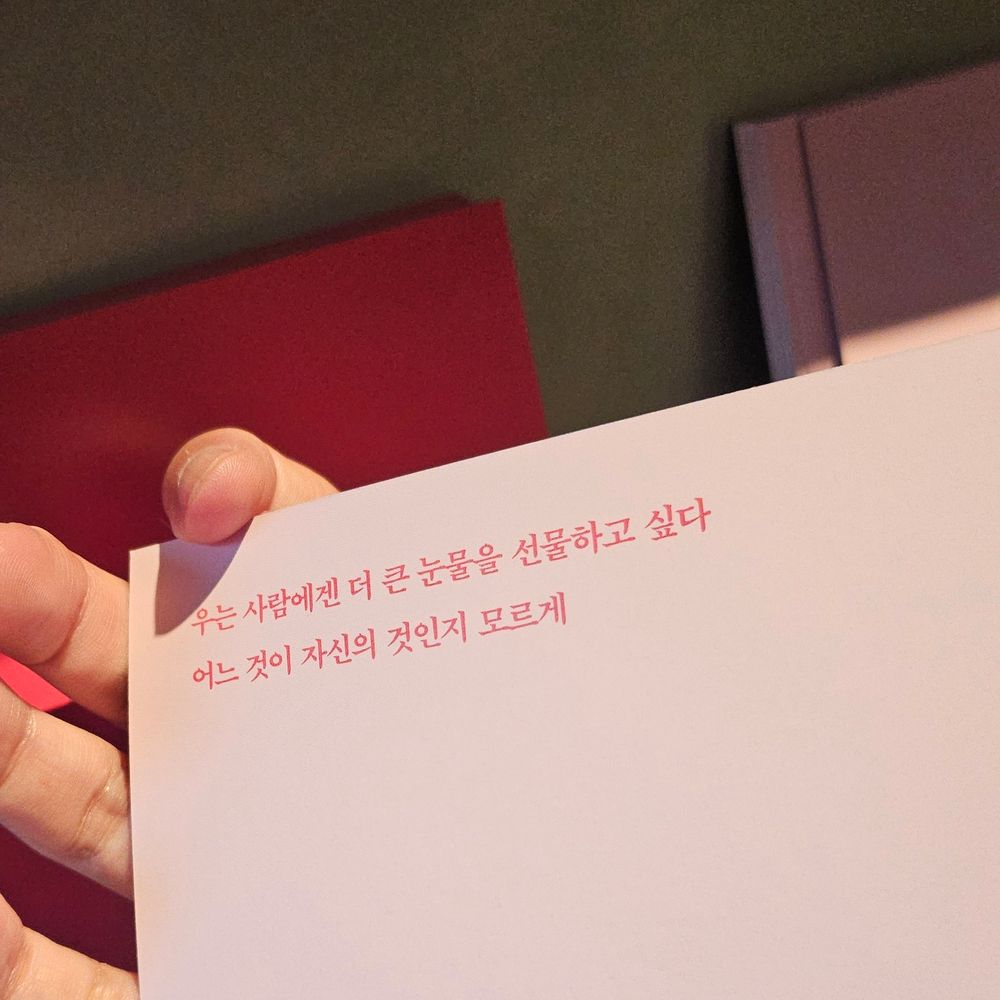 우는 사람에겐 더 큰 눈물을 선물하고 싶다
어느 것이 자신의 것인지 모르게